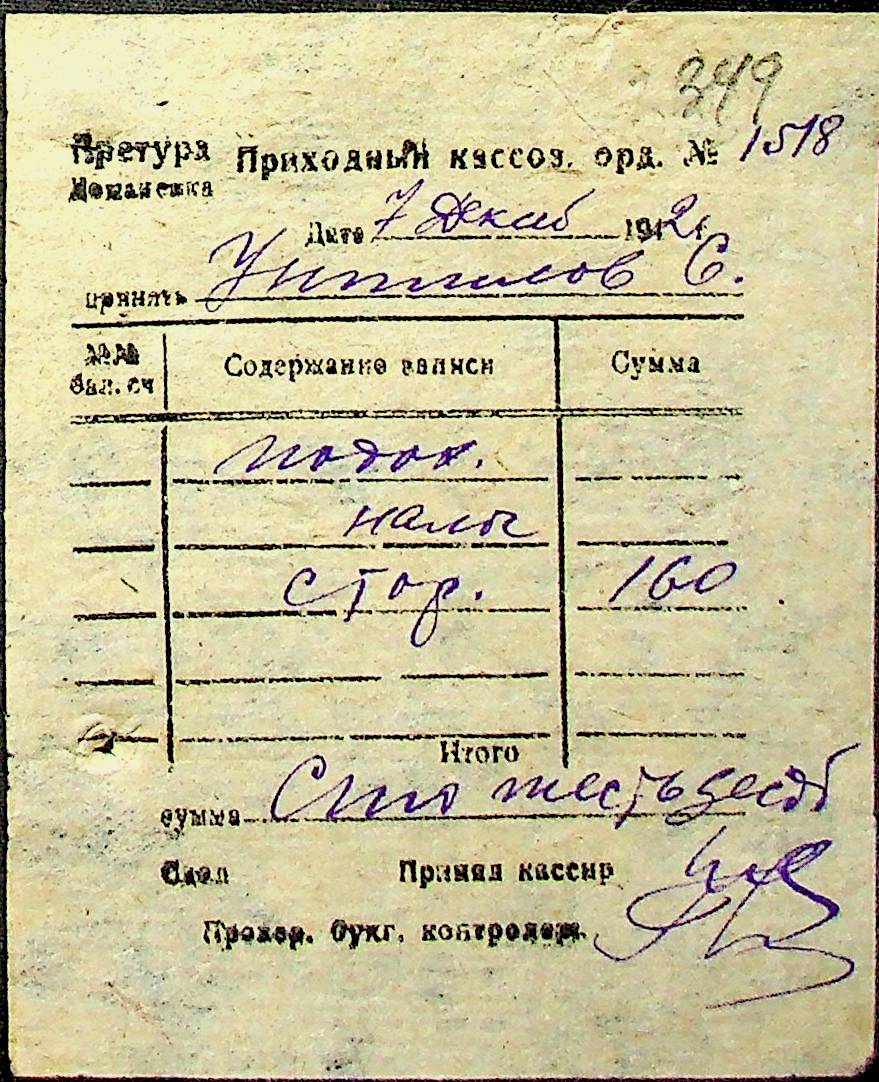 349
Претура Приходный кассов. орд. № 1518
Доманевка
Дата 7 Декаб 1942 г.
принять С.
№№ бал. сч Содержание записи Сумма
подох.
налог
стор. 160
Итого
сумма Сто шестьдесят
Сдал Принял кассир
Провер. бухг. контролер.